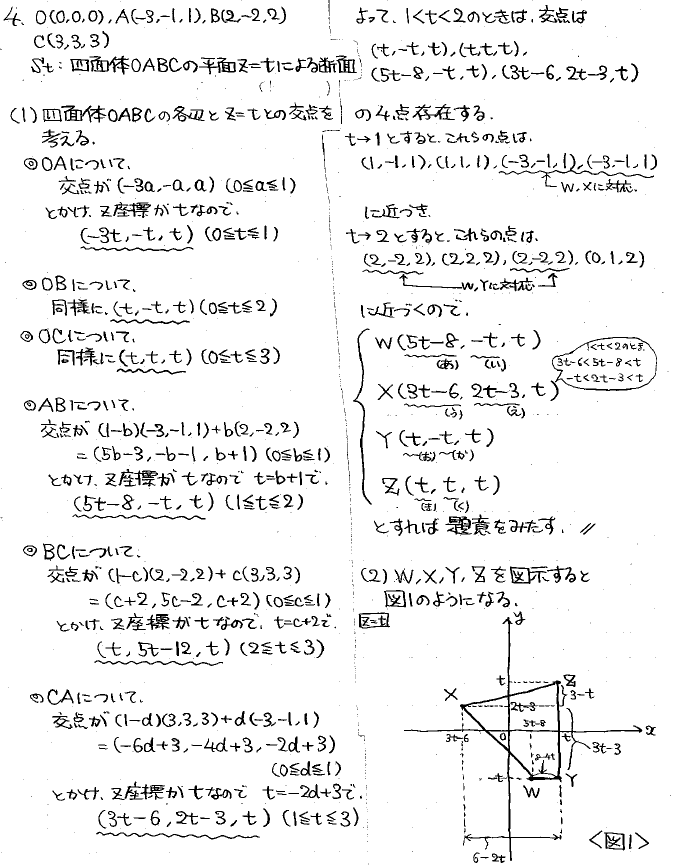 4. O(0,0,0), A(-3,-1,1), B(2,-2,2)
C(3,3,3)
St: 四面体OABCの平面z=tによる断面
(1) 四面体OABCの各辺とz=tとの交点を
考える.
◎OAについて.
交点が(-3a,-a,a) (0≦a≦1)
とかけ、z座標がtなので.
(-3t,-t,t) (0≦t≦1)
◎OBについて.
同様に.(t,-t,t) (0≦t≦2)
◎OCについて.
同様に(t,t,t) (0≦t≦3)
◎ABについて.
交点が (1-b)(-3,-1,1)+b(2,-2,2)
=(5b-3,-b-1,b+1) (0≦b≦1)
とかけ、z座標がtなので t=b+1で.
(5t-8,-t,t) (1≦t≦2)
◎BCについて.
交点が (1-c)(2,-2,2)+c(3,3,3)
=(c+2,5c-2,c+2) (0≦c≦1)
とかけ、z座標がtなので. t=c+2で.
(t,5t-12,t) (2≦t≦3)
◎CAについて.
交点が(1-d)(3,3,3)+d(-3,-1,1)
=(-6d+3,-4d+3,-2d+3)
(0≦d≦1)
とかけ、z座標がtなので t=-2d+3で.
(3t-6,2t-3,t) (1≦t≦3)
よって、1<t<2のときは、交点は
(t,-t,t),(t,t,t),
(5t-8,-t,t),(3t-6,2t-3,t)
の4点存在する.
t→1とすると、これらの点は.
(1,-1,1),(1,1,1),(-3,-1,1),(-3,-1,1)
W,Xに対応.
に近づき.
t→2とすると、これらの点は.
(2,-2,2),(2,2,2),(2,-2,2),(0,1,2)
W,Yに対応
に近づくので.
W(5t-8,-t,t)
(あ) (い)
1<t<2のとき.
3t-6<5t-8<t
-t<2t-3<t
X(3t-6,2t-3,t)
(う) (え)
Y(t,-t,t)
(お) (か)
Z(t,t,t)
(き) (く)
とすれば題意をみたす. //
(2) W,X,Y,Zを図示すると
図1のようになる.
z=t
y
t
Z
3-t
X
2t-3
5t-8
3t-6
0
t
x
3t-3
8-4t
-t
W
Y
6-2t
<図1>